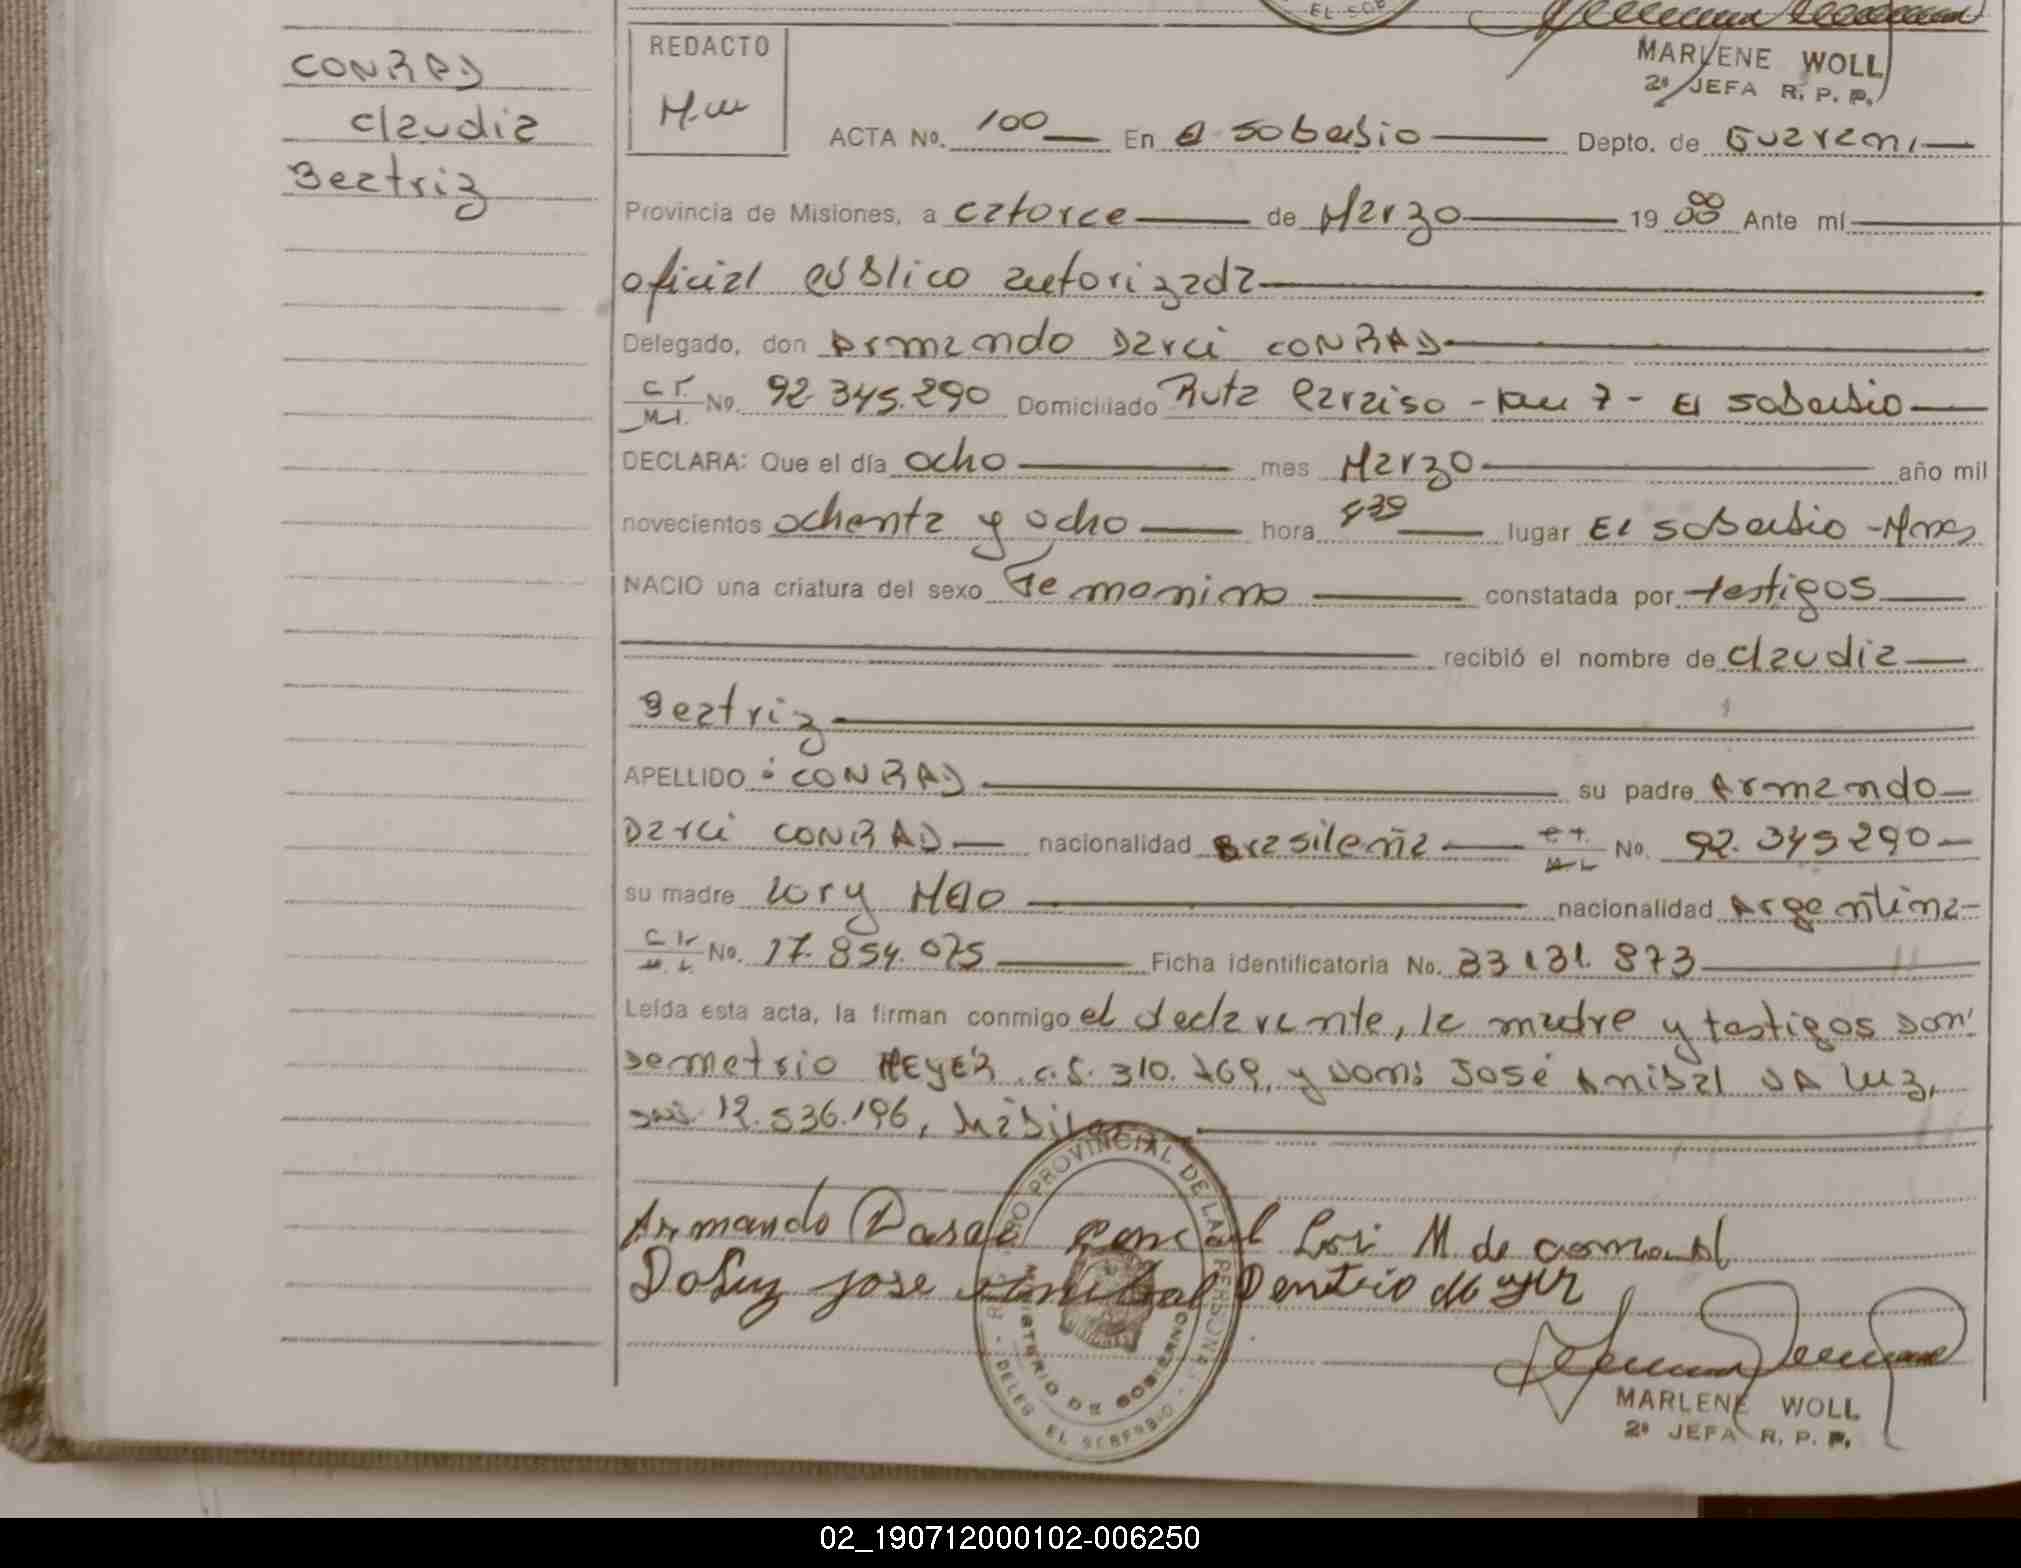 EL SOB
MARLENE WOLL
2ª JEFA R. P. P.
CONRAD
Claudia
Beatriz
REDACTO
M.W
ACTA No. 100 En El Soberbio Depto. de Guarani
Provincia de Misiones, a catorce de Marzo 19 88 Ante mí
oficial público autorizada
Delegado, don Armando Darci CONRAD
C.I. M.I. No. 92.345.290 Domiciliado Ruta Paraiso - km 7 - El Soberbio
DECLARA: Que el día ocho mes Marzo año mil
novecientos ochenta y ocho hora lugar El Soberbio - Mnes
NACIO una criatura del sexo Femenino constatada por testigos
recibió el nombre de Claudia
Beatriz
APELLIDO: CONRAD su padre Armando
Darci CONRAD nacionalidad Brasileña No. 92.345290
su madre Lory nacionalidad Argentina
No. 17.854.075 Ficha identificatoria No. 33 131.873
Leída esta acta, la firman conmigo el declarante, la madre y testigos don:
Demetrio MEYER 310. 769, y don: José Anibal DA Luz,
12.536.196, hábiles
Armando Lori M de
DaLuz jose Anibal
REGISTRO PROVINCIAL DE LAS PERSONAS
MINISTERIO DE GOBIERNO
DELEG. EL SOBERBIO
MARLENE WOLL
2ª JEFA R. P. P.
02_190712000102-006250